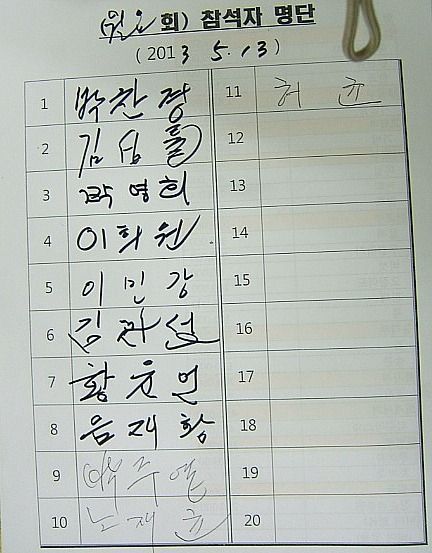 (월요 회) 참석자 명단
(2013 5.13)
1 박찬경
2 김
3 곽영희
4 이희원
5 이민강
6 김
7 황윤연
8 음재황
9
10 노재균
11 허균
12
13
14
15
16
17
18
19
20